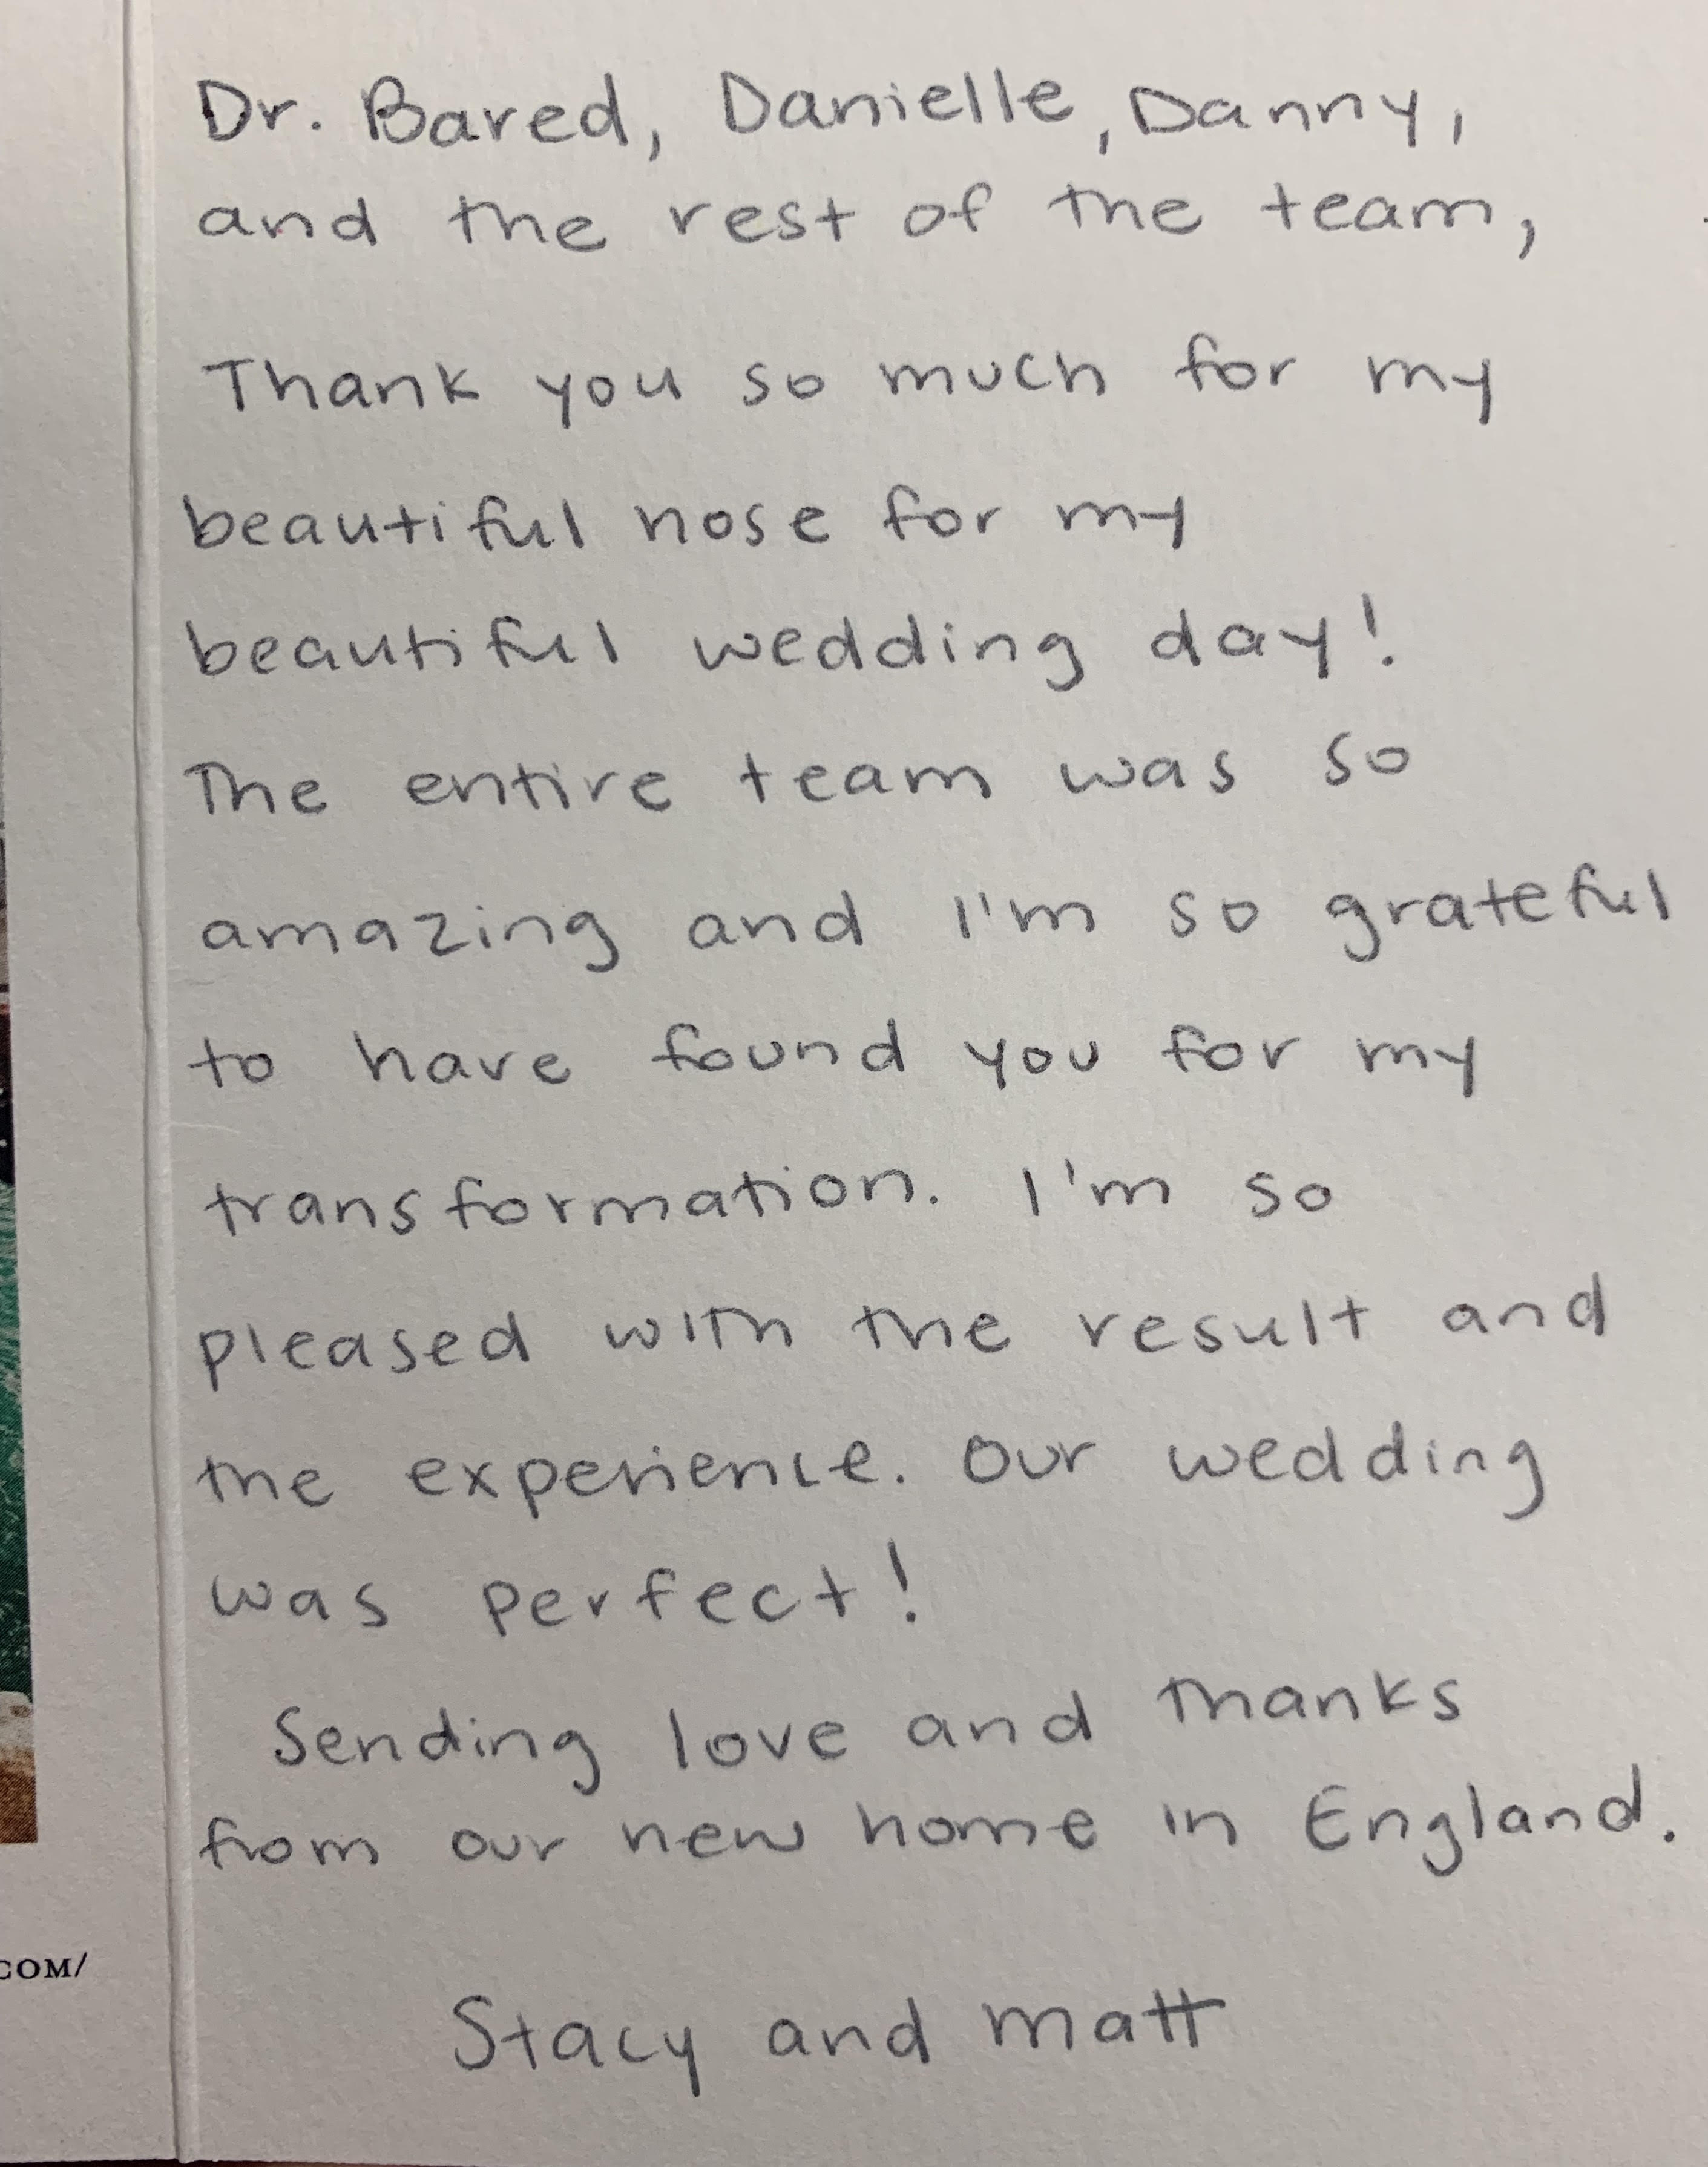 Dr. Bared, Danielle, Danny,
and the rest of the team,
Thank you so much for my
beautiful nose for my
beautiful wedding day!
The entire team was so
amazing and I'm so grateful
to have found you for my
transformation. I'm so
pleased with the result and
the experience. Our wedding
was perfect!
Sending love and thanks
from our new home in England.
COM/
Stacy and Matt